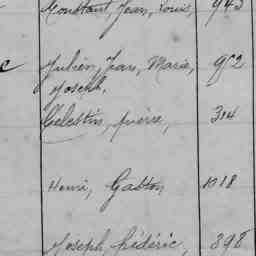 Constant, Jean, Louis, 943
Julien, Jean, Marie, 952
Joseph,
Célestin, Pierre, 314
Henri, Gaston 1018
Joseph, Frédéric, 398